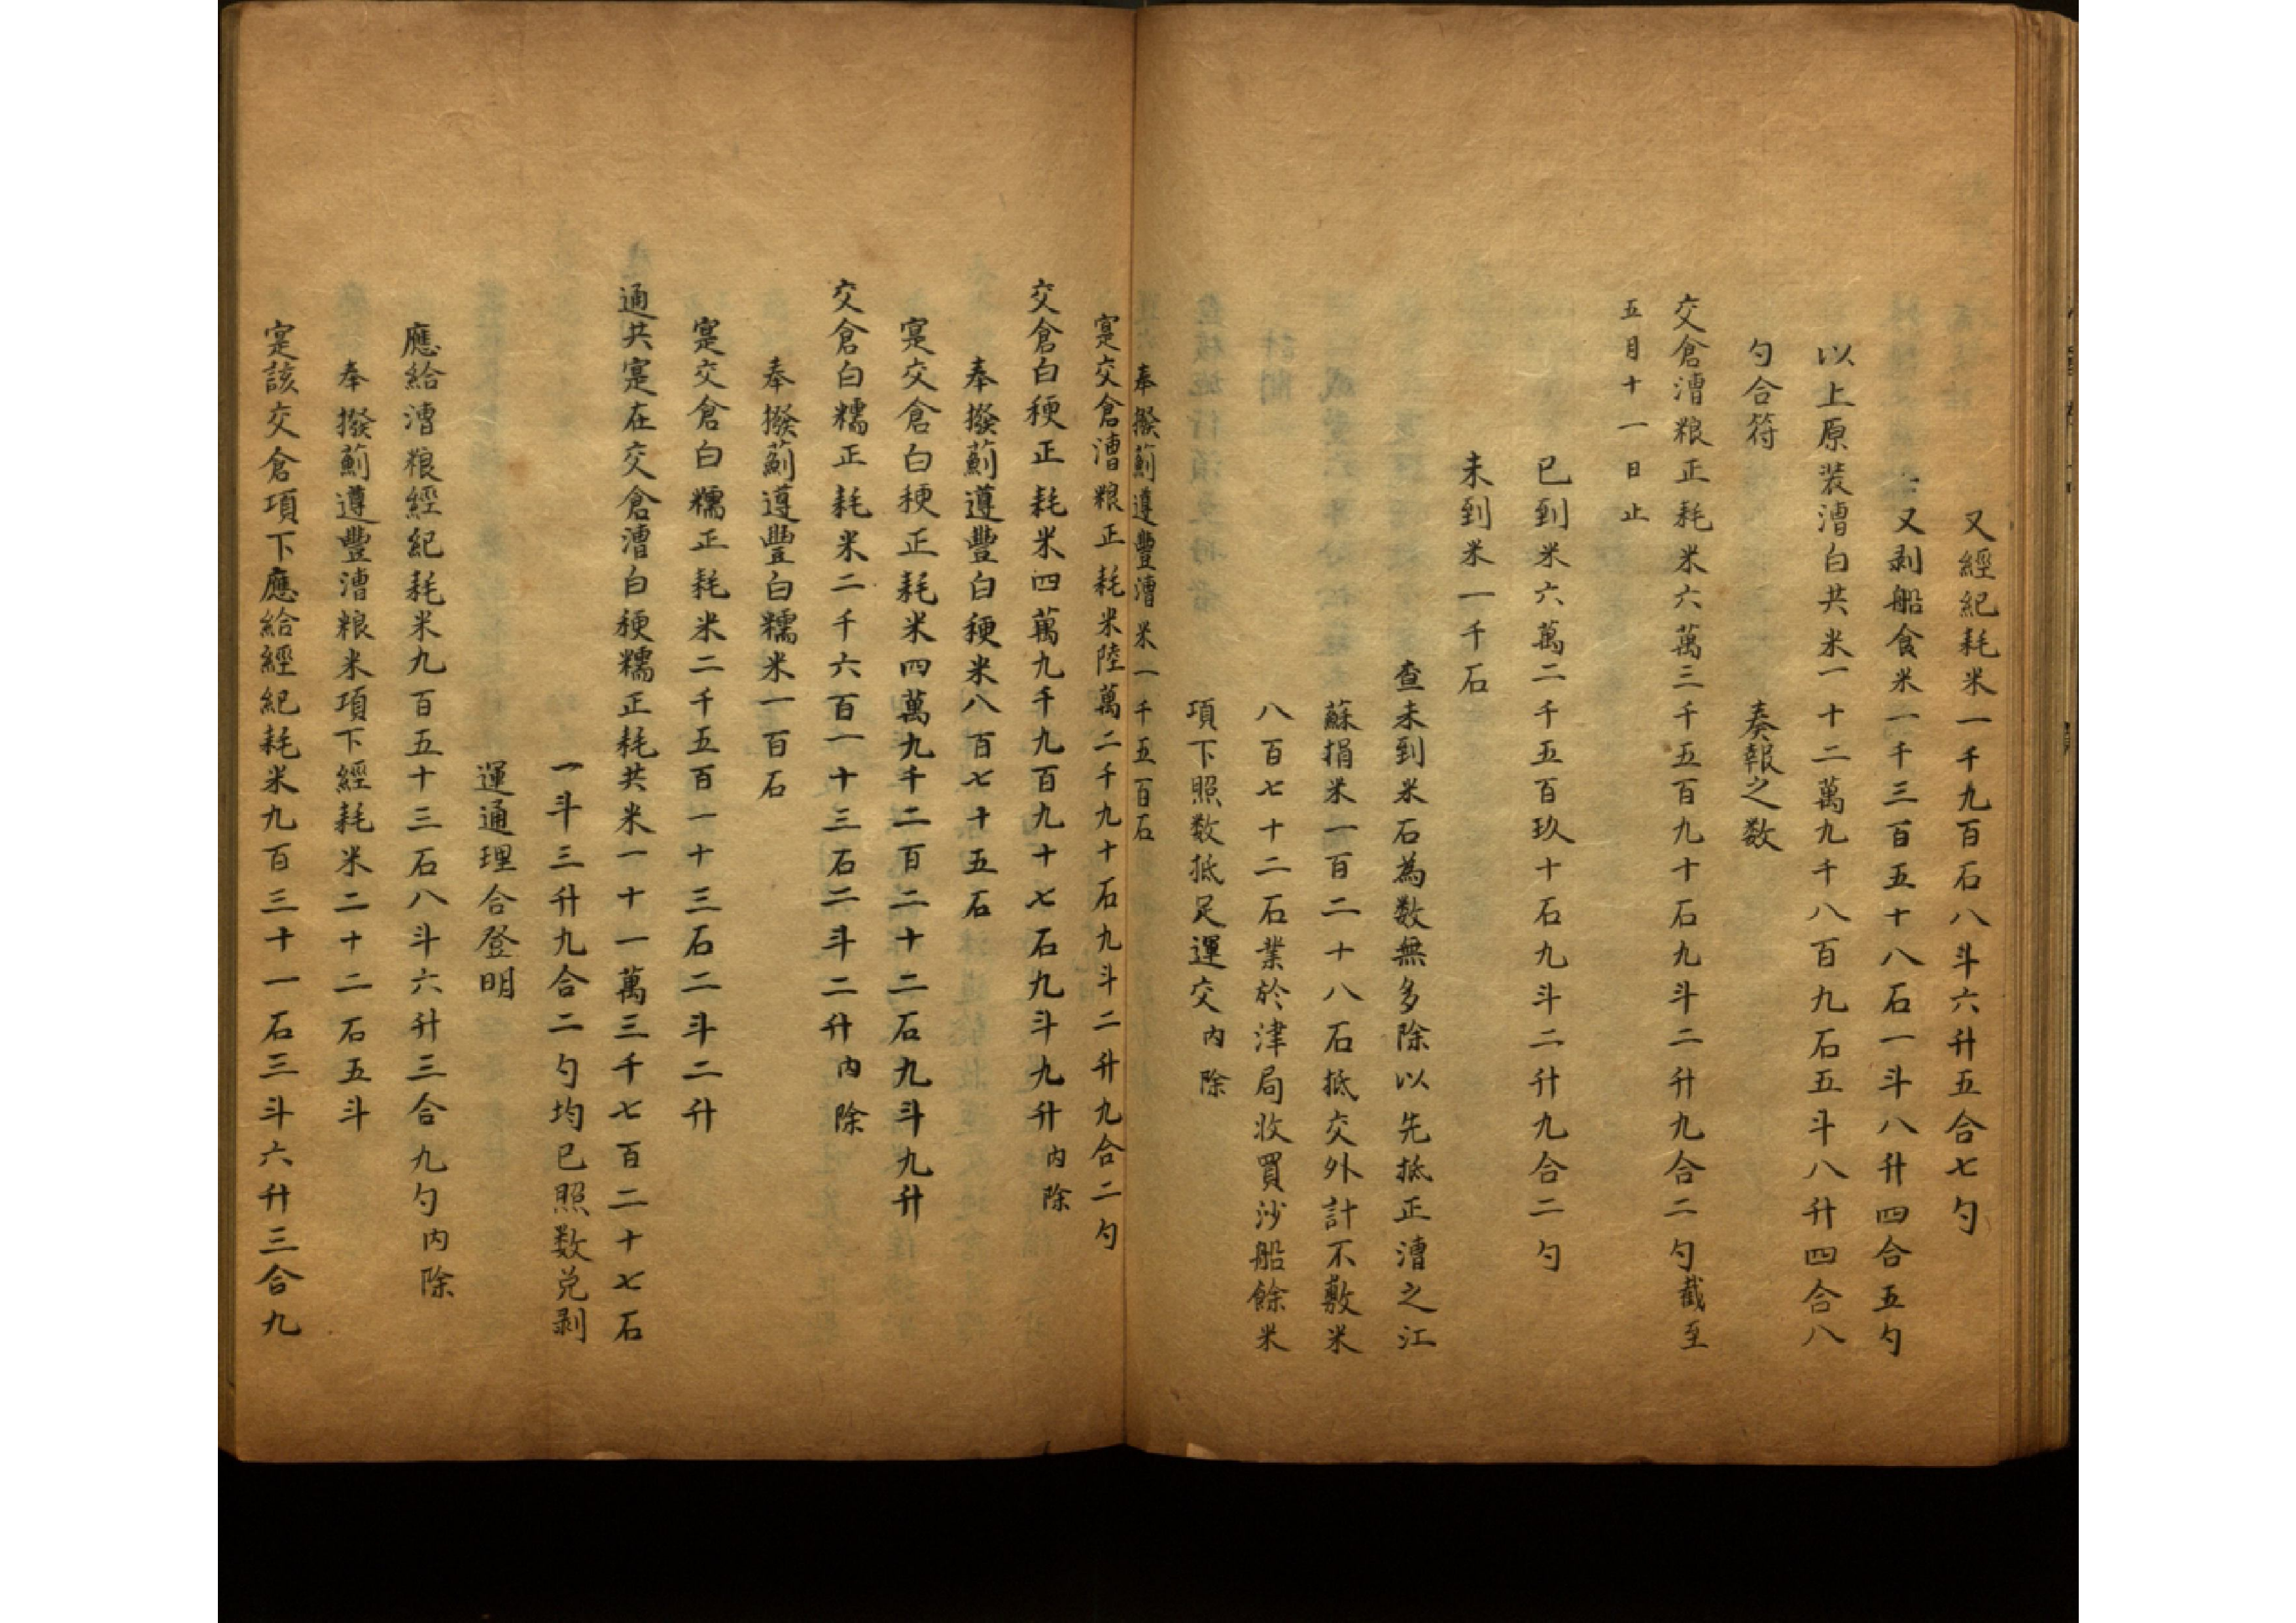 又經紀耗米一千九百石八斗六升五合七勺
又剥船食米一千三百五十八石一斗八升四合五勺
以上原裝漕白共米一十二萬九千八百九石五斗八升四合八
勺合符　奏報之数
交倉漕粮正耗米六萬三千五百九十石九斗二升九合二勺截至
五月十一日止
已到米六萬二千五百玖十石九斗二升九合二勺
未到米一千石
查未到米石為数無多除以先抵正漕之江
蘇捐米一百二十八石抵交外計不敷米
八百七十二石業於津局收買沙船餘米
項下照数抵足運交内除
奉撥薊遵豐漕米一千五百石
寔交倉漕粮正耗米陸萬二千九十石九斗二升九合二勺
交倉白粳正耗米四萬九千九百九十七石九斗九升内除
奉撥薊遵豐白粳米八百七十五石
寔交倉白粳正耗米四萬九千二百二十二石九斗九升
交倉白糯正耗米二千六百一十三石二斗二升内除
奉撥薊遵豐白糯米一百石
寔交倉白糯正耗米二千五百一十三石二斗二升
通共寔在交倉漕白粳糯正耗共米一十一萬三千七百二十七石
一斗三升九合二勺均已照数兑剥
運通理合登明
應給漕粮經紀耗米九百五十三石八斗六升三合九勺内除
奉撥薊遵豐漕粮米項下經耗米二十二石五斗
寔該交倉項下應給經紀耗米九百三十一石三斗六升三合九